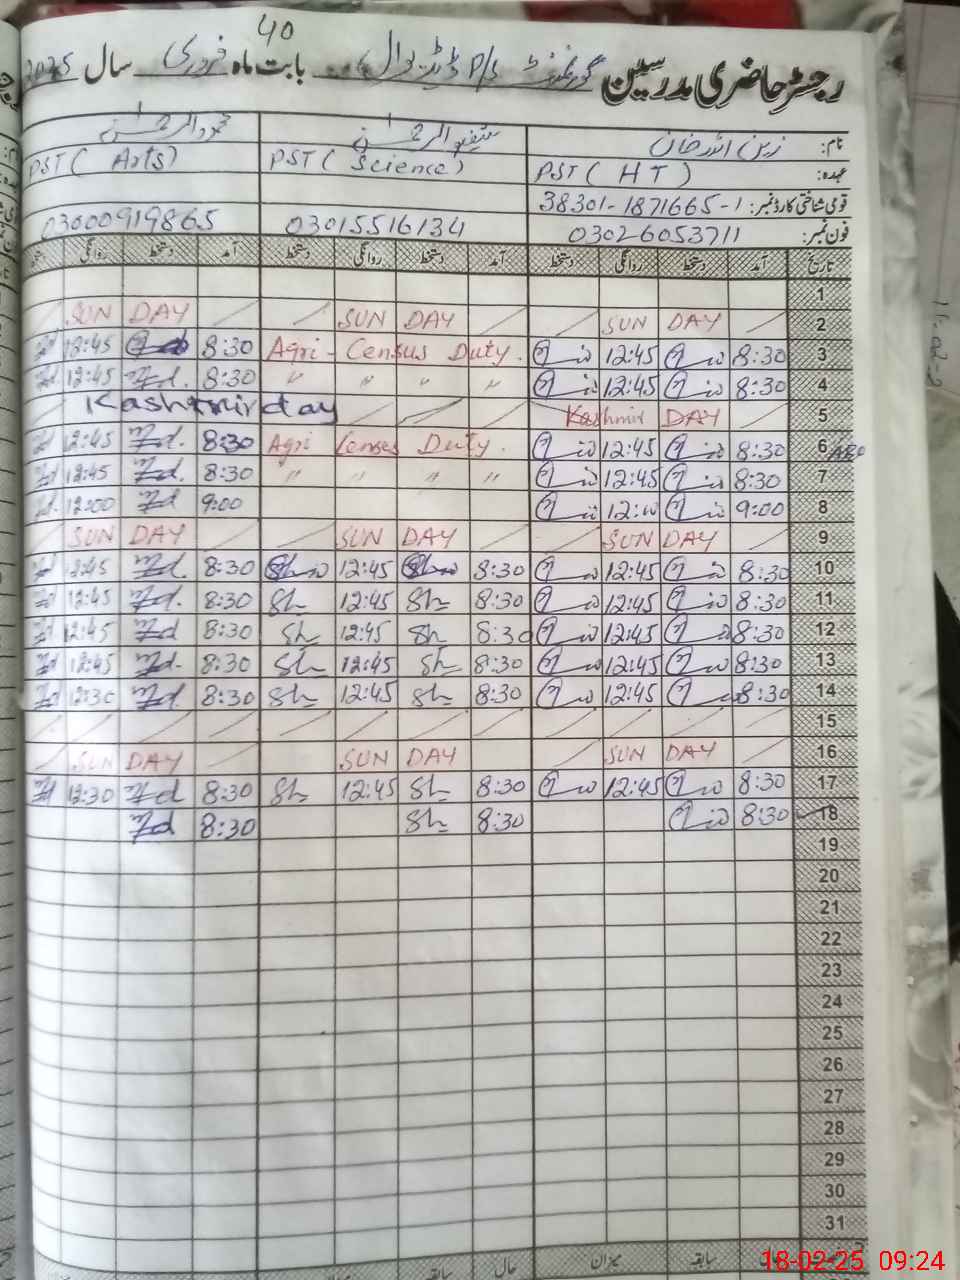 40
رجسٹر حاضری مدرسین گورنمنٹ P/S بابت ماہ فروری سال 2025
نام: زین اللہ خان
عہدہ: PST ( H T ) PST ( Science ) PST ( Arts )
قومی شناختی کارڈ نمبر: 38301-1871665-1
فون نمبر: 03026053711 03015516134 03000919865
تاریخ آمد دستخط روانگی دستخط آمد دستخط روانگی دستخط آمد دستخط روانگی
1
SUN DAY SUN DAY SUN DAY 2
12:45 8:30 Agri - Census Duty. 12:45 8:30 3
12:45 Zd. 8:30 " " " " 12:45 8:30 4
Kashmir day Kashmir DAY 5
12:45 Zd. 8:30 Agri Census Duty. 12:45 8:30 6
12:45 Zd. 8:30 " " " " 12:45 8:30 7
12:00 Zd 9:00 9:00 8
SUN DAY SUN DAY SUN DAY 9
12:45 Zd. 8:30 12:45 8:30 12:45 8:30 10
12:45 Zd. 8:30 Sh 12:45 Sh 8:30 12:45 8:30 11
12:45 Zd 8:30 Sh 12:45 Sh 8:30 12:45 8:30 12
12:45 Zd. 8:30 Sh 12:45 Sh 8:30 12:45 8:30 13
12:30 Zd. 8:30 Sh 12:45 Sh 8:30 12:45 8:30 14
15
SUN DAY SUN DAY SUN DAY 16
12:30 Zd 8:30 Sh 12:45 Sh 8:30 12:45 8:30 17
Zd 8:30 Sh 8:30 8:30 18
19
20
21
22
23
24
25
26
27
28
29
30
31
سابقہ میزان حال سابقہ میزان
18-02-25 09:24